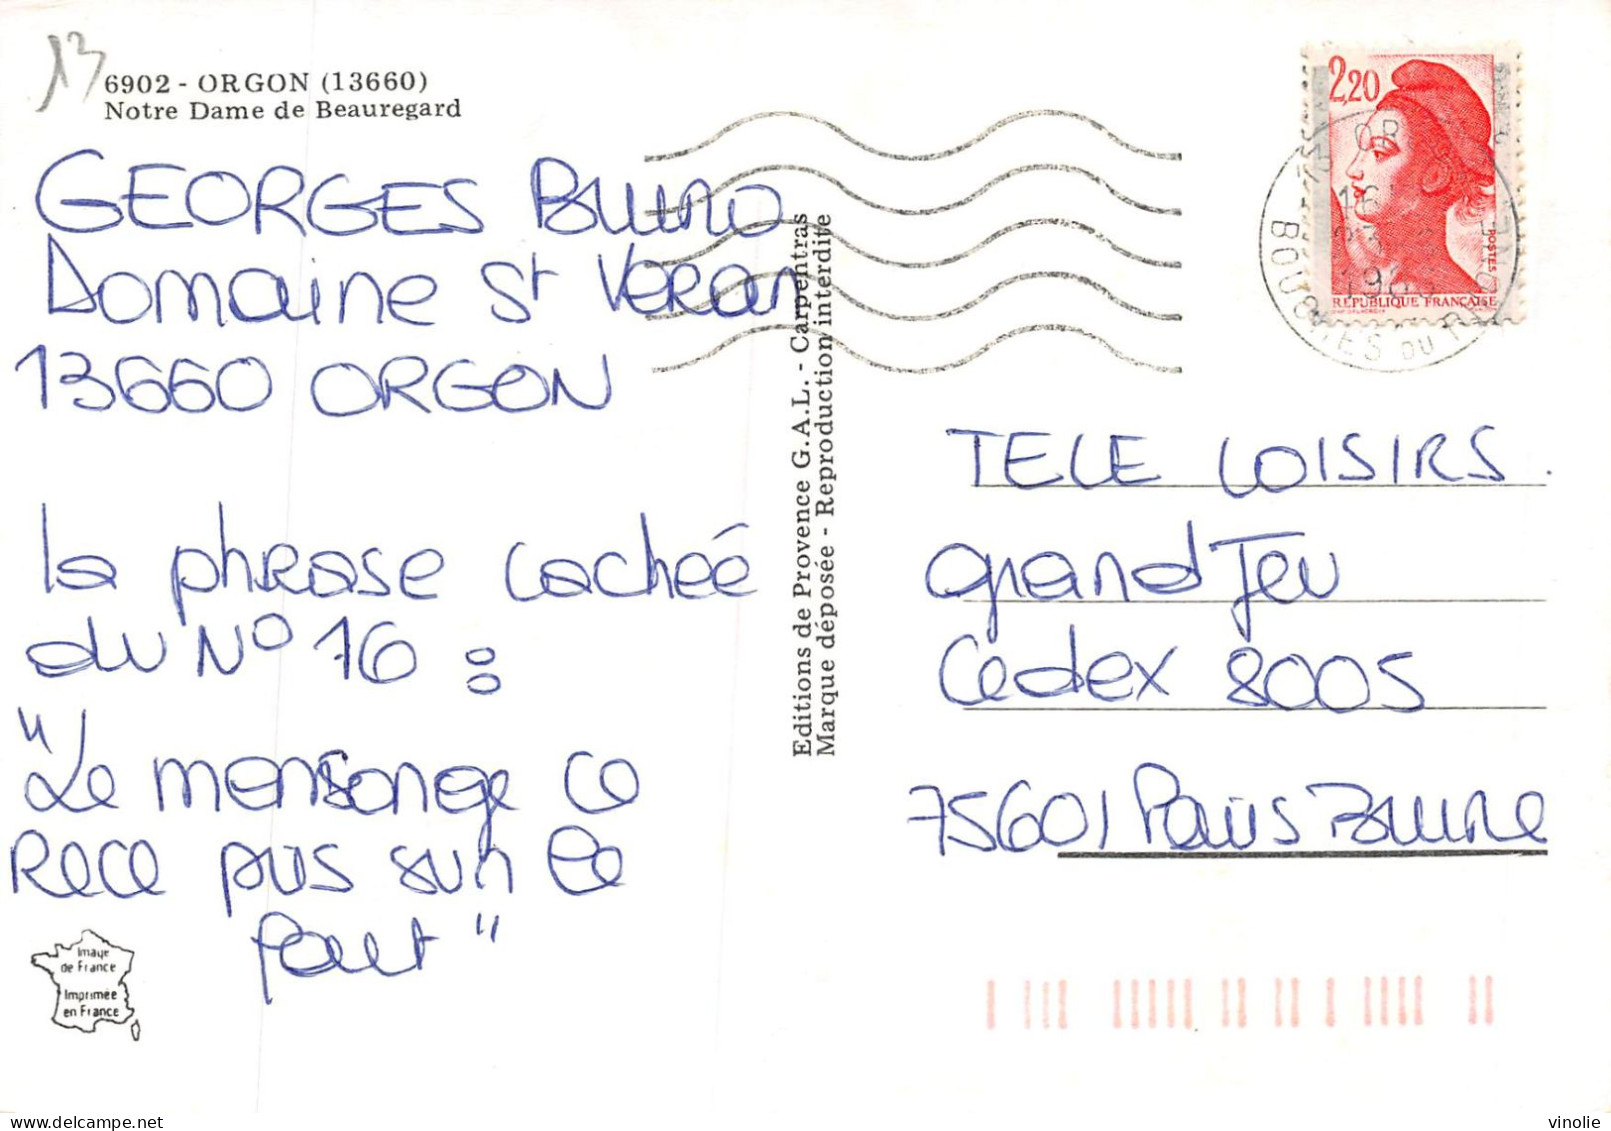 13
6902 - ORGON (13660)
Notre Dame de Beauregard
GEORGES Bruno
Domaine St Veran
13660 ORGON
la phrase cachée
du N° 16 :
"Le mensonge ce
Rece pas sur le
fait"
Image
de France
Imprimée
en France
Editions de Provence G.A.L. - Carpentras
Marque déposée - Reproduction interdite
2,20
POSTES
RÉPUBLIQUE FRANÇAISE
13 OR
16
23
BOUCHES DU RHONE
TELE LOISIRS.
grand Jeu
Cedex 8005
75601 Paris Brune
vinolie